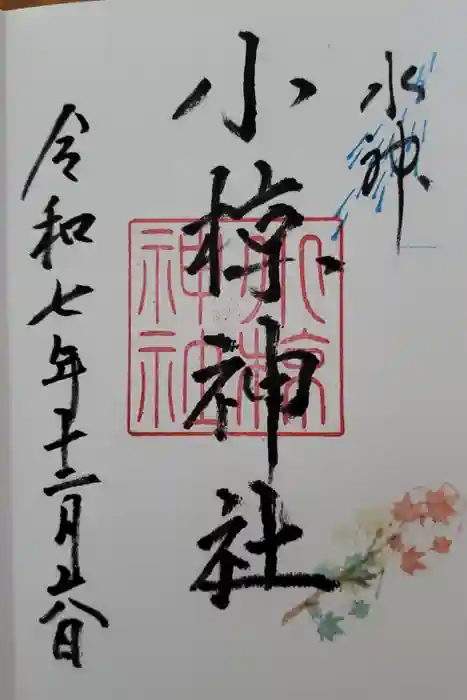 水神
小椋神社
小椋
神社
令和七年十二月廿八日